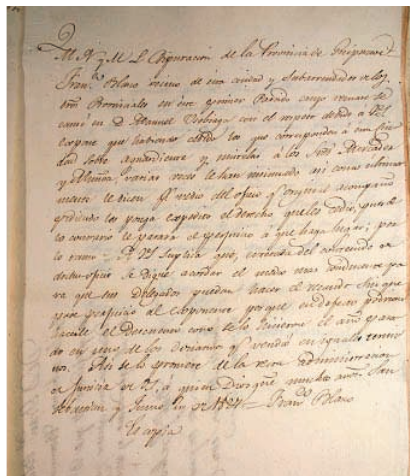 M. N. y M. L. Diputacion de la Provincia de Guipuzcoa
Fran.co Blanc vecino de esta ciudad y Subarrendador de los
Provinciales en este primer Partido cuyo remate se
causó en D. Manuel con el respeto debido á V.S.
expone que habiendo cedido los que corresponden á esta Ciu
dad sobre aguardiente y mistelas á los S.res
y varias veces le han insinuado asi como ultima
mente le dicen p.r medio del oficio q.e original acompaña
pidiendo les ponga expedito el derecho que les cedió, pues de
lo contrario le parará el perjuicio á que haya lugar; por
lo tanto A V.S. suplica que, enterada del contenido de
dicho oficio se digne acordar el medio mas conducente pa
ra que sus Delegados puedan hacer el recaudo sin que
pare perjuicio al exponente porque en defecto podran
hacerle el descuento como se lo hicieron el año pasa
do en uno de los donativos q.e vendió en aquellos termi
nos. Asi se lo promete de la recta administracion
de justicia de V.S. á quien Dios gue. muchos años. San
Sebastian y Junio de 1824 = Fran.co Blanc
Es copia